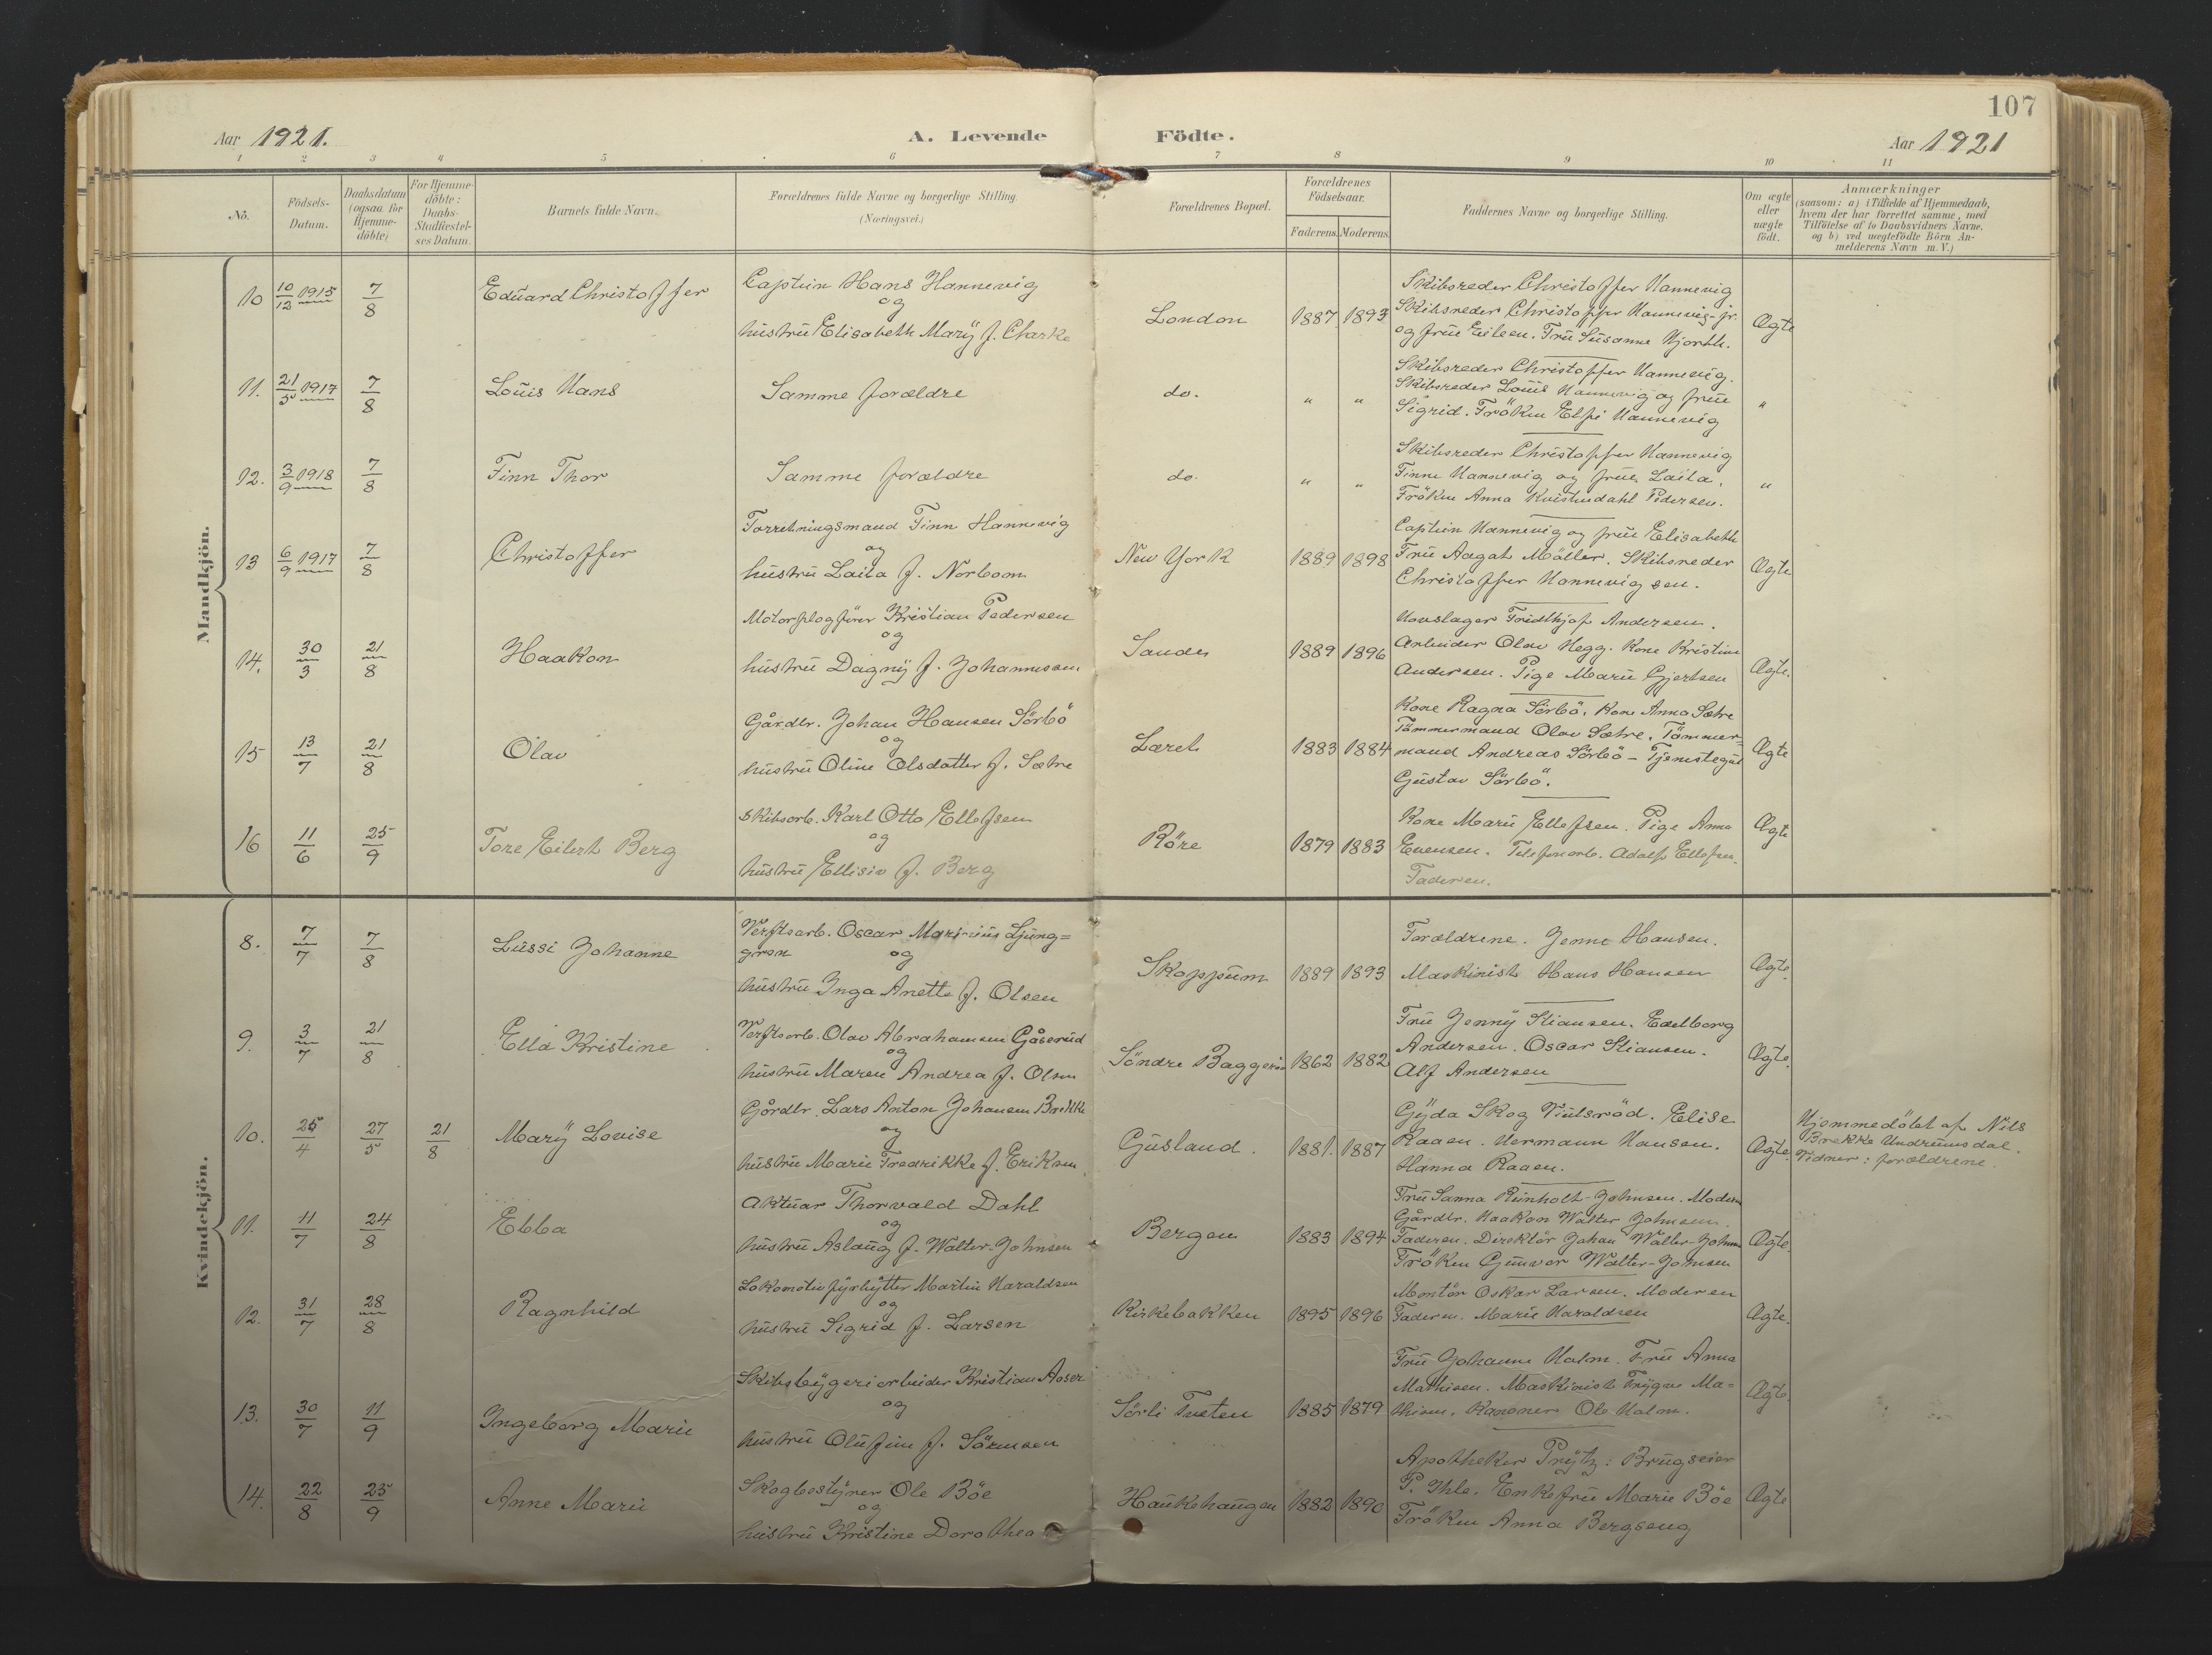 107
Aar 1921.
A. Levende
Födte.
Aar 1921
1 2 3 4 5 6 7 8 9 10 11
No.
Födsels-
Datum.
Daabsdatum
(ogsaa for
Hjemme-
döbte)
For Hjemme-
döbte:
Daabs-
Stadfæstel-
ses Datum.
Barnets fulde Navn.
Forældrenes fulde Navne og borgerlige Stilling.
(Næringsvei.)
Forældrenes Bopæl.
Forældrenes
Födselsaar.
Faderens. Moderens.
Faddernes Navne og borgerlige Stilling.
Om ægte
eller
uægte
födt.
Anmærkninger
(saasom: a) i Tilfælde af Hjemmedaab,
hvem der har forrettet samme, med
Tilföielse af to Daabsvidners Navne.
og b) ved uægtefödte Börn An-
melderens Navn m. V.)
Mandkjön.
10 10/12 1915 7/8
Eduard Christoffer
Captein Hans Hannevig
og
hustru Elisabeth Mary f. Clarke
London
1887 1893
Skibsreder Christoffer Hannevig
Skibsreder Christoffer Hannevig jr.
og frue Eileen. Fru Susanne Hjorth.
Ægte
11. 21/5 1917 7/8
Louis Hans
Samme forældre
do.
" "
Skibsreder Christoffer Hannevig.
Skibsreder Louis Hannevig og frue
Sigrid. Fröken Elfi Hannevig
"
12. 3/9 1918 7/8
Finn Thor
Samme forældre
do.
" "
Skibsreder Christoffer Hannevig
Finn Hannevig og frue Laila.
Fröken Anna Kvistendahl Pedersen.
"
13 6/9 1917 7/8
Christoffer
Forretningsmand Finn Hannevig
og
hustru Laila f. Norbom
New York
1889 1898
Captein Hannevig og frue Elisabeth
Fru Aagat Möller. Skibsreder
Christoffer Hannevig sen.
Ægte
14. 30/3 21/8
Haakon
Motorplogförer Kristian Pedersen
og
hustru Dagny f. Johannesen
Sanden
1889 1896
Hovslager Fridthjof Andersen.
Arbeider Olav Hegg. Kone Kristine
Andersen. Pige Marie Gjertsen
Ægte.
15 13/7 21/8
Olav
Gårdbr. Johan Hansen Sörbö
og
hustru Oline Olsdatter f. Sætre
Læret
1883 1884
Kone Ragna Sörbö. Kone Anna Sætre
Tömmermand Olav Sætre. Tömmer-
mand Andreas Sörbö - Tjenestegut
Gustav Sörbö.
Ægte
16 11/6 25/9
Tore Eilert Berg
Skibsarb. Karl Otto Ellefsen
og
hustru Ellisiv f. Berg
Röre
1879 1883
Kone Marie Ellefsen. Pige Anna
Evensen. Telefonarb. Adolf Ellefsen.
Faderen.
Ægte
Kvindekjön.
8. 7/7 7/8
Lussi Johanne
Verftsarb. Oscar Marinius Ljung=
gren og
hustru Inga Anette f. Olsen
Skoppum
1889 1893
Forældrene. Jenne Hansen.
Maskinist Hans Hansen
Ægte.
9. 3/7 21/8
Ella Kristine
Verftsarb. Olav Abrahamsen Gåserud
og
hustru Maren Andrea f. Olsen
Söndre Baggerön
1862 1882
Fru Jenny Stiansen. Edelborg
Andersen. Oscar Stiansen.
Alf Andersen
Ægte.
10. 25/4 27/5 21/8
Mary Lovise
Gårdbr. Lars Anton Johansen Brekke
og
hustru Marie Fredrikke f. Eriksen
Gusland.
1881. 1887
Gyda Skog Viulsröd. Elise
Raaen. Hermann Hansen.
Hanna Raaen.
Ægte.
Hjemmedöbt af Nils
Brekke Undrumsdal.
Vidner: forældrene.
11. 11/7 24/8
Ebba
Aktuar Thorvald Dahl
og
hustru Aslaug f. Walter-Johnsen
Bergen
1883 1894
Fru Sanna Reinholt-Johnsen. Moderen
Gårdbr. Haakon Walter Johnsen.
Faderen. Direktör Johan Walter-Johnsen
Fröken Gunvor Walter-Johnsen
Ægte.
12. 31/7 28/8
Ragnhild
Lokomotivfyrbytter Martin Haraldsen
og
hustru Sigrid f. Larsen
Kirkebakken
1895 1896
Montör Oskar Larsen. Moderen
Faderen. Marie Haraldsen
Ægte.
13. 30/7 11/9
Ingeborg Marie
Skibsbyggeriarbeider Kristian Aaser
og
hustru Olufine f. Sörensen
Sörli Tveten
1885 1879
Fru Johanne Holm. Fru Anna
Mathisen. Maskinist Trygve Ma=
thisen. Kanoner Ole Holm.
Ægte.
14. 22/8 25/9
Anne Marie
Skogbestyrer Ole Böe
og
hustru Kristine Dorothea
Haukehaugen
1882 1890
Apotheker Prytz: Brugseier
P. Ihle. Enkefru Marie Böe
Fröken Anna Bergseng
Ægte